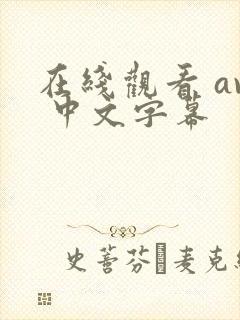 在綫觀看 av
中文字幕
史蒈芬 麦克